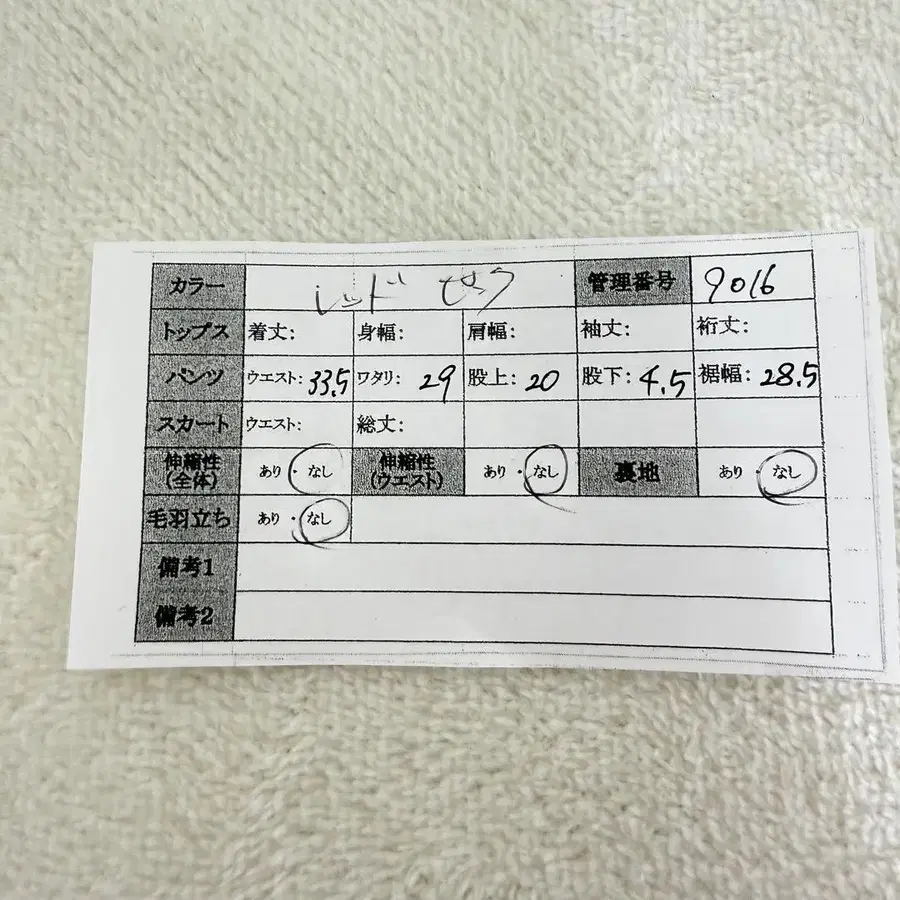 カラー レッド 管理番号 9016
トップス 着丈: 身幅: 肩幅: 袖丈: 裄丈:
パンツ ウエスト: 33.5 ワタリ: 29 股上: 20 股下: 4.5 裾幅: 28.5
スカート ウエスト: 総丈:
伸縮性(全体) あり・なし 伸縮性(ウエスト) あり・なし 裏地 あり・なし
毛羽立ち あり・なし
備考1
備考2